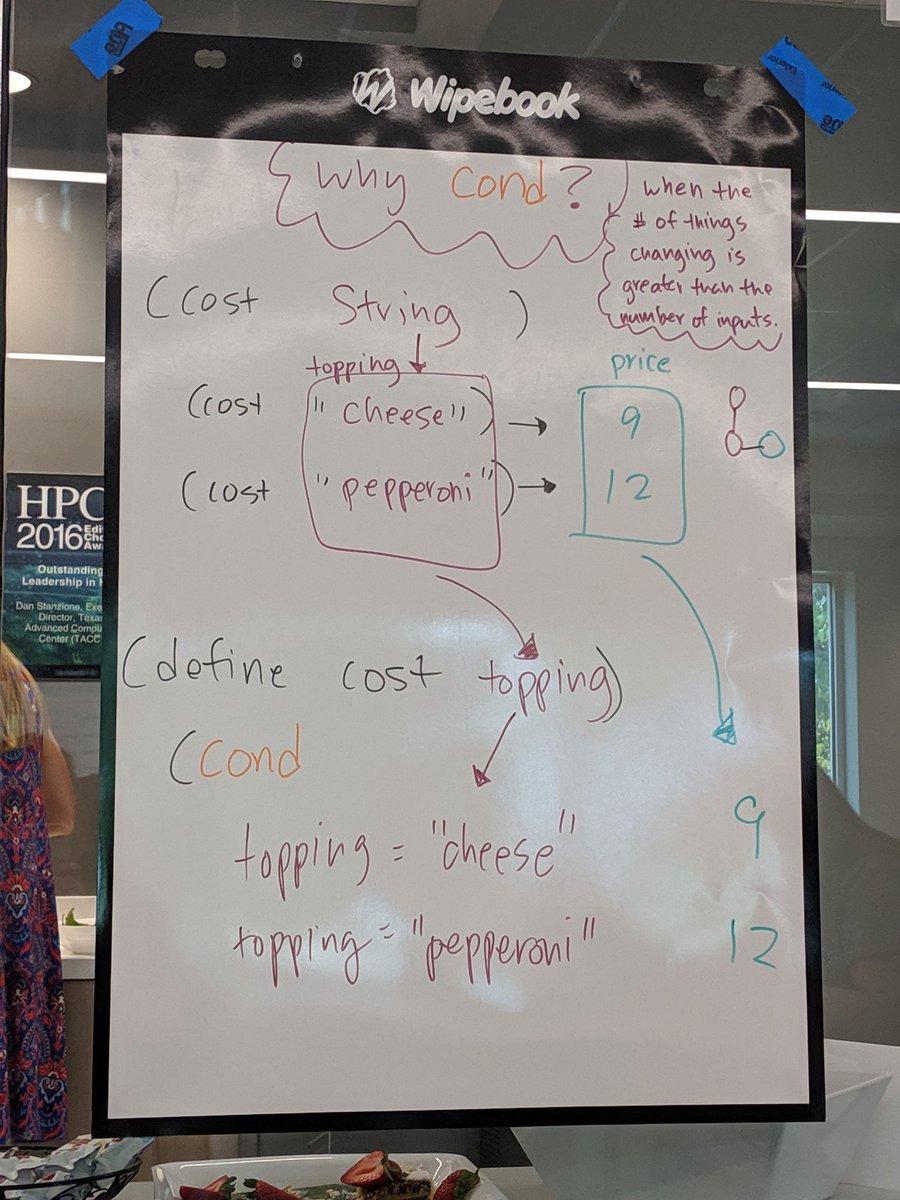 Wipebook
Why cond?
when the
# of things
changing is
greater than the
number of inputs.
(cost String )
topping
price
(cost "cheese") → 9
(cost "pepperoni") → 12
(define cost topping)
(cond
topping = "cheese" 9
topping = "pepperoni" 12
HPC
2016
Outstanding
Leadership in
Dan Stanzione, Exe
Director, Texa
Advanced Compu
Center (TACC